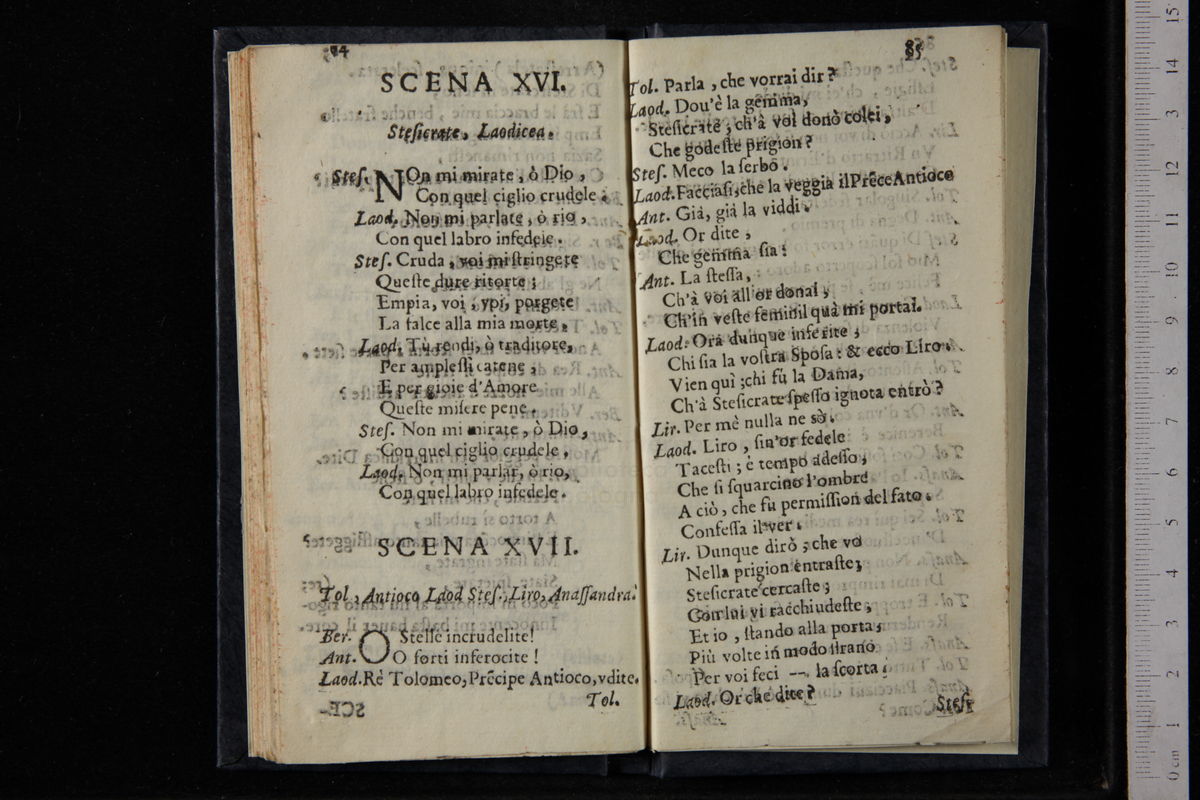 SCENA XVI.
Stesicrate, Laodicea.
Stes. NOn mi mirate, ò Dio,
Con quel ciglio crudele;
Laod. Non mi parlate, ò rio,
Con quel labro infedele.
Stes. Cruda, voi mi stringete
Queste dure ritorte;
Empia, voi, voi, porgete
La falce alla mia morte.
Laod. Tù rendi, ò traditore,
Per amplessi catene,
E per gioie d'Amore
Queste misere pene.
Stes. Non mi mirate, ò Dio,
Con quel ciglio crudele,
Laod. Non mi parlar, ò rio,
Con quel labro infedele.
SCENA XVII.
Tol, Antioco Laod Stes. Liro, Anassandra.
Ber. O Stelle incrudelite!
Ant. O forti inferocite!
Laod. Rè Tolomeo, Prēcipe Antioco, vdite.
Tol.
85
Tol. Parla, che vorrai dir?
Laod. Dou'è la gemma,
Stesicrate, ch'à voi donò colei,
Che godeste prigion?
Stes. Meco la serbo.
Laod. Facciasi, che la veggia il Prēce Antioco
Ant. Già, già la viddi.
Laod. Or dite,
Che gemma sia?
Ant. La stessa,
Ch'à voi all'or donai,
Ch'in veste feminil quà mi portai.
Laod. Ora dunque inferite,
Chi sia la vostra Sposa: & ecco Liro.
Vien quì; chi fù la Dama,
Ch'à Stesicrate spesso ignota entrò?
Lir. Per mè nulla ne sò.
Laod. Liro, sin'or fedele
Tacesti; è tempo adesso,
Che si squarcino l'ombre
A ciò, che fu permission del fato.
Confessa il ver.
Lir. Dunque dirò, che vo
Nella prigion entraste,
Stesicrate cercaste;
Con lui vi racchiudeste;
Et io, stando alla porta,
Più volte in modo strano
Per voi feci -- la scorta.
Laod. Or che dite?
Stes.